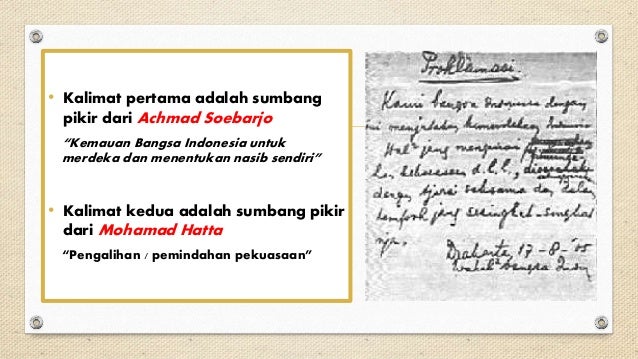 • Kalimat pertama adalah sumbang
pikir dari Achmad Soebarjo
“Kemauan Bangsa Indonesia untuk
merdeka dan menentukan nasib sendiri”
• Kalimat kedua adalah sumbang pikir
dari Mohamad Hatta
“Pengalihan / pemindahan pekuasaan”
Proklamasi
Kami bangsa Indonesia dengan
ini menjatakan kemerdekaan
Hal² jang mengenai
kekoeasaan d.l.l.,
dengan tjara saksama dan dalam
tempoh jang sesingkat-singkat
nja.
Djakarta, 17-8-'05
Wakil² bangsa Indon